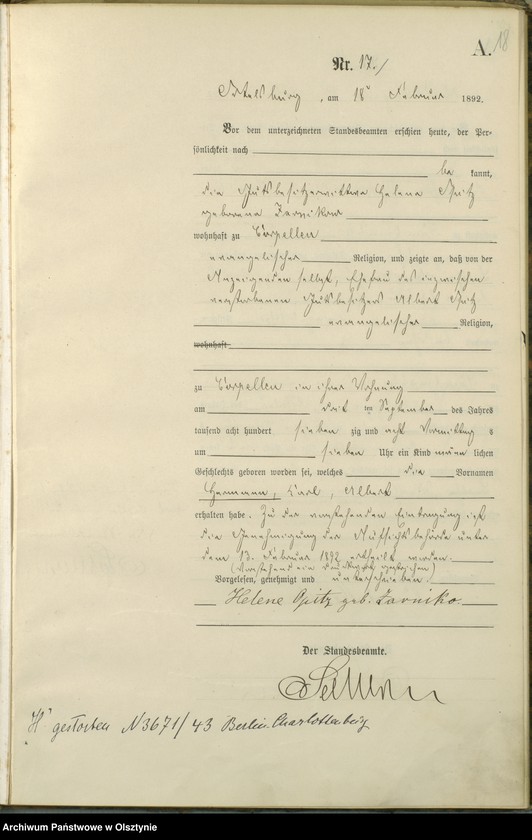 18
A.
Nr. 17.
Ortelsburg, am 18 Februar 1892.
Vor dem unterzeichneten Standesbeamten erschien heute, der Per-
sönlichkeit nach
be kannt,
die Gutsbesitzerwittwe Helene Opitz
geborene Zarniko
wohnhaft zu Corpellen
evangelischer Religion, und zeigte an, daß von der
Anzeigenden selbst, Ehefrau des inzwischen
verstorbenen Gutsbesitzers Albert Opitz
evangelischer Religion,
wohnhaft
zu Corpellen in ihrer Wohnung
am ten September des Jahres
tausend acht hundert sieben zig und acht Vormittag s
um sieben Uhr ein Kind männ lichen
Geschlechts geboren worden sei, welches die Vornamen
Hermann, Carl, Albert
erhalten habe. Zu der vorstehenden Eintragung ist
die Genehmigung der Aufsichtsbehörde unter
dem 13. Februar 1892 ertheilt worden.
(Vorstehend ein Druckwort gestrichen)
Vorgelesen, genehmigt und unterschrieben.
Helene Opitz geb. Zarniko.
Der Standesbeamte.
"H" gestorben N 3671/43 Berlin-Charlottenburg
Archiwum Państwowe w Olsztynie